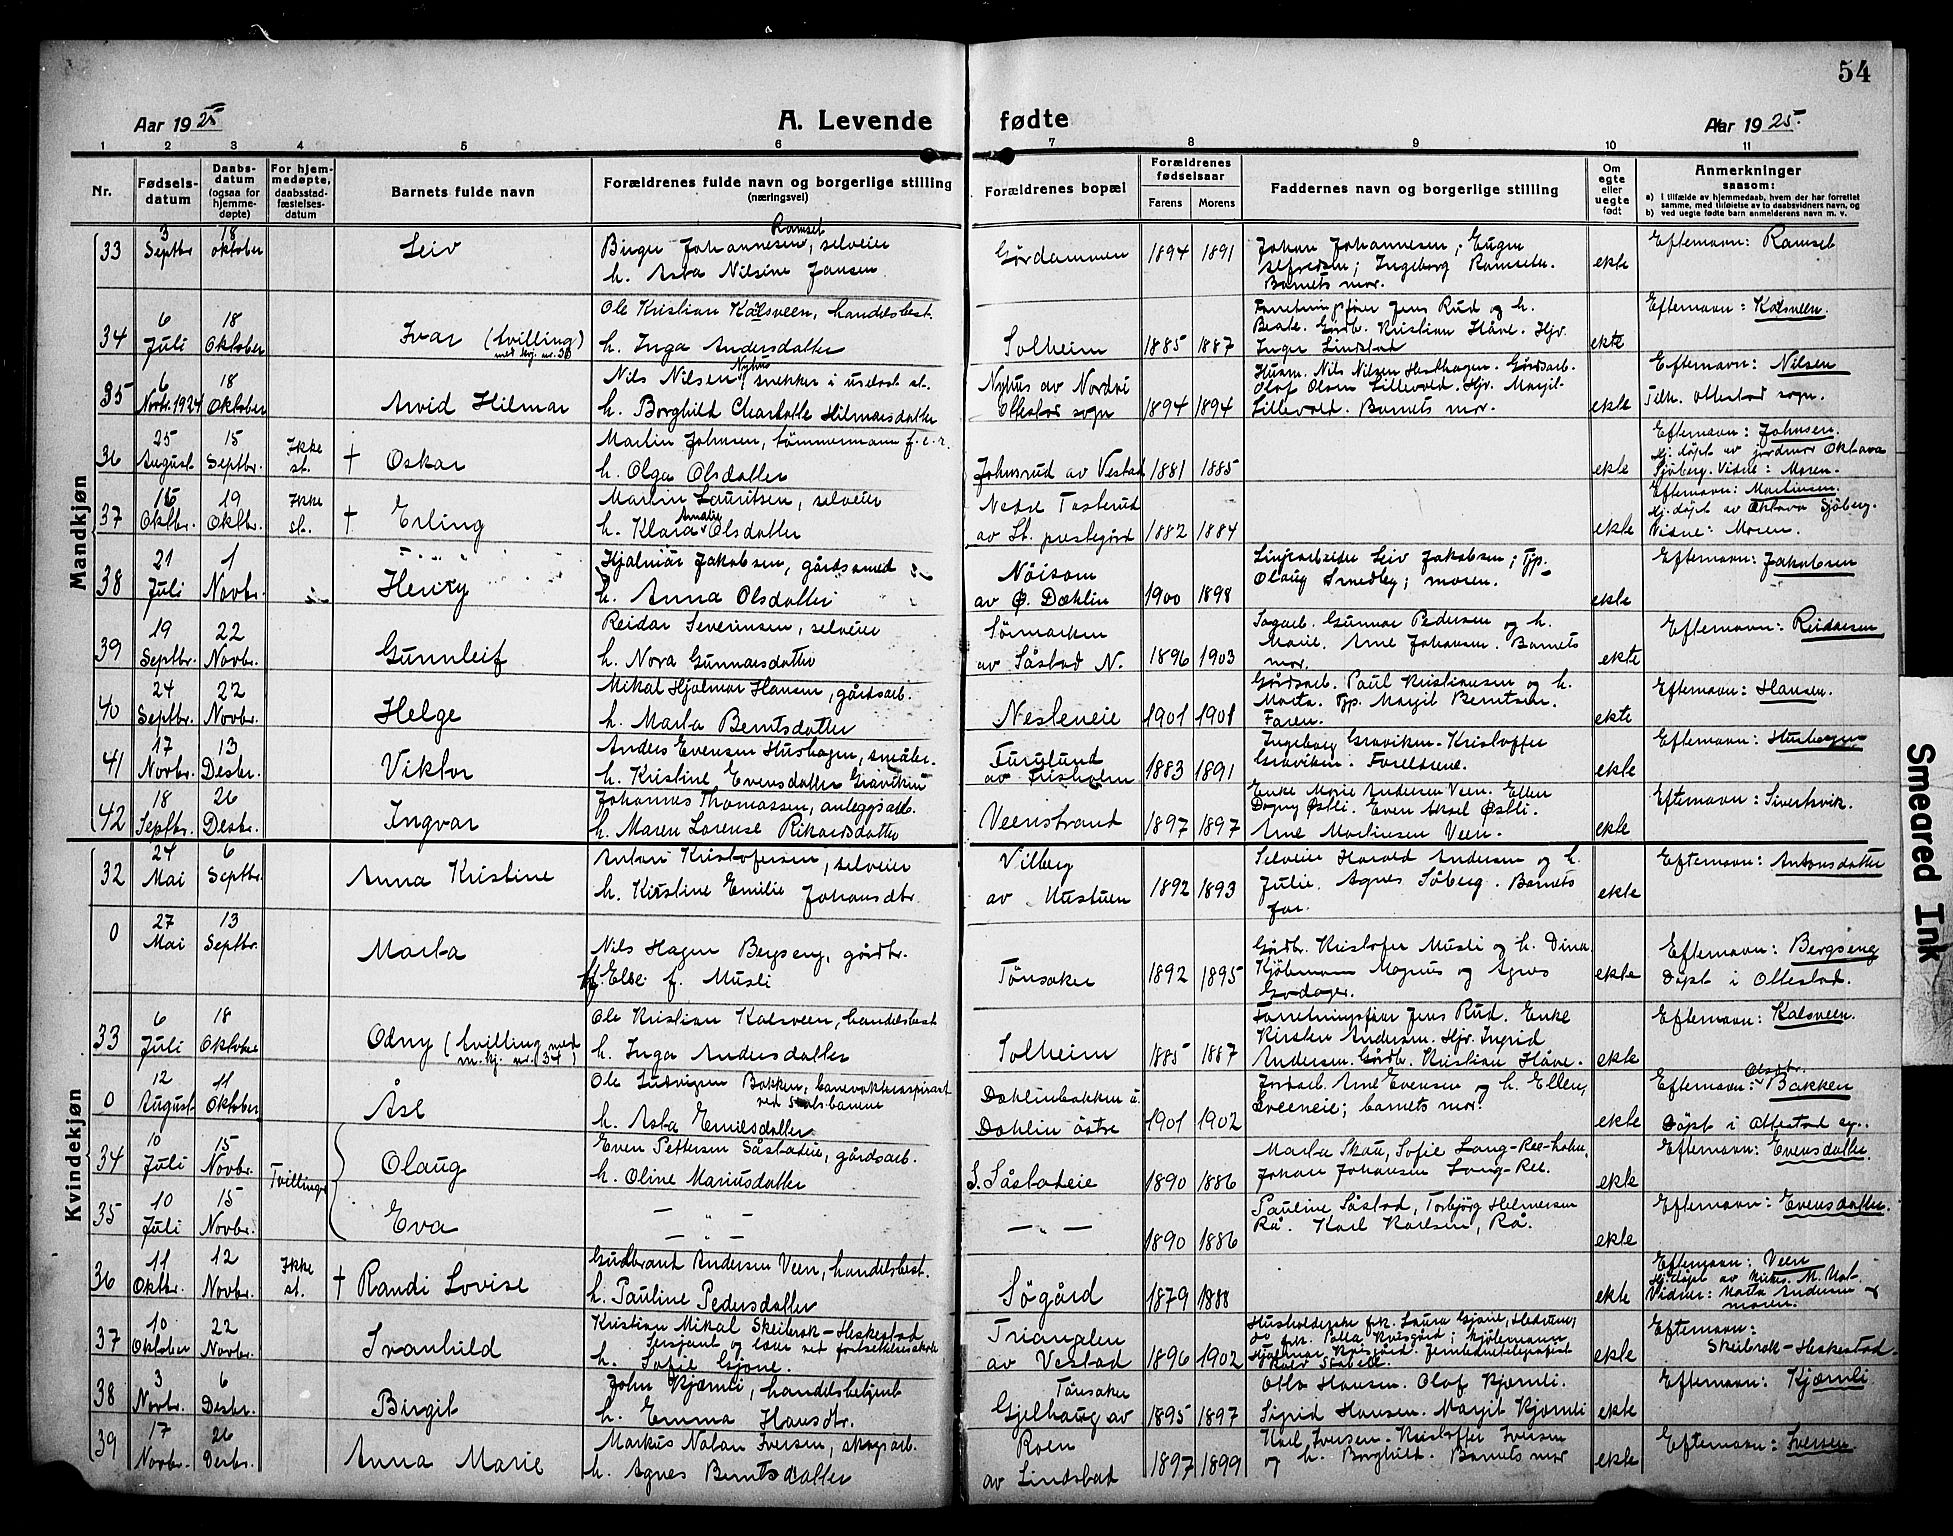 54
Aar 1925
A. Levende fødte
Aar 1925.
1 2 3 4 5 6 7 8 9 10 11
Nr.
Fødsels-datum
Daabs-datum (ogsaa for hjemme-døpte)
For hjem-medøpte, daabsstad-fæstelses-datum
Barnets fulde navn
Forældrenes fulde navn og borgerlige stilling (næringsvei)
Forældrenes bopæl
Forældrenes fødselsaar
Farens Morens
Faddernes navn og borgerlige stilling
Om egte eller uegte født
Anmerkninger saasom:
a) I tilfælde av hjemmedaab, hvem der har forrettet samme, med tilføielse av to daabsvidners navn, og
b) ved uegte fødte barn anmelderens navn m. v.
Mandkjøn
33 3 Septbr 18 oktober Leiv
Birger Johannesen Ramset, selveier
h. Asta Nilsine Jansen
Gørdammen 1894 1891
Johan Johannesen; Eugen
Alfredsen; Ingeborg Ramseth.
Barnets mor.
ekte Efternavn: Ramset
34 6 Juli 18 Oktober Ivar (tvilling) med kvj. nr. 33
Ole Kristian Kalsveen, handelsbest.
h. Inga Andersdatter
Solheim 1885 1887
Forretningsfører Jens Rud og h.
Beate. Gårdb. Kristian Håve. Hjv.
Inger Lindstad
ekte Efternavn: Kalsveen.
35 6 Novbr. 1924 18 Oktober Arvid Hilmar
Nils Nilsen Nyhus snekker i utdat st.
h. Borghild Charlotte Hilmarsdatter
Nyhus av Nordvi
Ottestad sogn 1894 1894
Husm. Nils Nilsen Hesthagen. Gårdsarb.
Olaf Olsen Lillevold. Hjv. Margit
Lillevold. Barnets mor.
ekte Efternavn: Nilsen
Tilh. Ottestad sogn.
36 25 August 15 Septbr. Ikke st. † Oskar
Martin Johnsen, tømmermann f.e.r.
h. Olga Olsdatter
Johnsrud av Vestad 1881 1885
ekte Efternavn: Johnsen.
Hj.døpt av jordmor Oktava
Sjøberg. Vidne: Moren.
37 16 Oktbr. 19 Oktbr. Ikke st. † Erling
Martin Lauritsen, selveier
h. Klara Amalie Olsdatter
Nedre Tasterud
av St. prestegård 1882 1884
ekte Efternavn: Martinsen.
Hj.døpt av Oktava Sjøberg.
Vidne: Moren.
38 21 Juli 1 Novbr. Henry
Hjalmar Jakobsen, gårdssmed
h. Anna Olsdatter
Nøisom
av Ø. Dæhlin 1900 1898
Linjearbeider Leiv Jakobsen; Tjp.
Olaug Smedby; moren.
ekte Efternavn: Jakobsen
39 19 Septbr. 22 Novbr. Gunnleif
Reidar Severinsen, selveier
h. Nora Gunnarsdatter
Sørmarken
av Såstad N. 1896 1903
Sagarb. Gunnar Pedersen og h.
Marie. Arne Johansen. Barnets
mor.
ekte Efternavn: Reidarsen
40 24 Septbr. 22 Novbr. Helge
Mikal Hjalmar Hansen, gårdsarb.
h. Marta Berntsdatter
Nesteneie 1901 1901
Gårdsarb. Paul Kristiansen og h.
Marta. Tjp. Margit Berntsen.
Faren.
ekte Efternavn: Hansen.
41 17 Novbr. 13 Desbr. Viktor
Anders Evensen Hushagen, småbr.
h. Kristine Evensdatter Graviken
Furulund
av Frisholm 1883 1891
Ingeborg Graviken. Kristoffer
Graviken. Foreldrene.
ekte Efternavn: Hushagen
42 18 Septbr. 26 Desbr. Ingvar
Johannes Thomassen, anleggsarb.
h. Maren Lorense Rikardsdatter
Veenstrand 1897 1897
Enke Marie Andersen Veen. Ellen
Dagny Østli. Even Aksel Østli.
Arne Martinsen Veen.
ekte Efternavn: Sivertsvik.
Kvindekjøn
32 24 Mai 6 Septbr. Anna Kristine
Anton Kristofersen, selveier
h. Kirstine Emilie Johansdtr.
Vilberg
av Hustuen 1892 1893
Selveier Harald Andersen og h.
Julie. Agnes Såberg. Barnets
far.
ekte Efternavn: Antonsdatter
0 27 Mai 13 Septbr. Marta
Nils Hagen Bergseng, gårdbr.
H. Else f. Musli
Tønsaker 1892 1895
Gårdbr. Kristofer Musli og h. Dina
Kjøbmann Magnus og Agnes
Godager.
ekte Efternavn: Bergseng
Døpt i Ottestad.
33 6 Juli 18 Oktober Odny (tvilling med m.kj. nr. 34)
Ole Kristian Kalsveen, handelsbest
h. Inga Andersdatter
Solheim 1885 1887
Forretningsfører Jens Rud. Enke
Kirsten Andersen. Hjv. Ingrid
Andersen. Gårdbr. Kristian Håve.
ekte Efternavn: Kalsveen.
0 12 August 11 Oktober Åse
Ole Ludvigsen Bakken, banevokteraspirant
ved Statsbanene
h. Asta Emilsdatter
Dæhlinbakken u.
Dæhlin østre 1901 1902
Jordarb. Arne Evensen og h. Ellen,
Sveeneie; barnets mor.
ekte Efternavn: Olsdtr. Bakken
Døpt i Ottestad sg..
34 10 Juli 15 Novbr. Tvillinger Olaug
Even Pettersen Såstadeie, gårdsarb.
h. Oline Mariusdatter
S. Såstadeie 1890 1886
Marta Skau, Sofie Lang-Ree-halm,
Johan Johansen Lang-Ree.
ekte Efternavn: Evensdatter.
35 10 Juli 15 Novbr. Eva
— " —
— — 1890 1886
Pauline Såstad, Torbjørg Helmersen
Rå. Karl Karlsen, Rå.
ekte Efternavn: Evensdatter.
36 11 Oktbr. 12 Novbr. Ikke st. † Randi Lovise
Gudbrant Andersen Veen, handelsbest.
h. Pauline Pedersdatter
Søgård 1879 1888
ekte Efternavn: Veen
Hj.døpt av
Vidner: Marta Andersen og
moren.
37 10 Oktober 22 Novbr. Svanhild
Kristian Mikal Skeibrok-Heskestad
Sersjant og lærer ved fortsettelsesskole
h. Sofie Gjone.
Trianglen
av Vestad 1896 1902
Husholderske frk. Laura Gjone, Hedrum;
ekte Efternavn:
Skeibrok-Heskestad.
38 3 Novbr. 6 Desbr. Birgit
John Kjærnli, handelsbetjent
h. Emma Hansdtr.
Tønsaker
Gjelhaug av 1895 1897
Otto Hansen. Olaf Kjærnli.
Sigrid Hansen. Margit Kjærnli
ekte Efternavn: Kjærnli
39 17 Novbr. 26 Desbr. Anna Marie
Markus Natan Iversen, skogsarb.
h. Agnes Berntsdatter
Roen
av Lindstad 1897 1899
Karl Iversen. Kristoffer Iversen
og h. Borghild. Barnets mor
ekte Efternavn: Iversen.
Smeared Ink